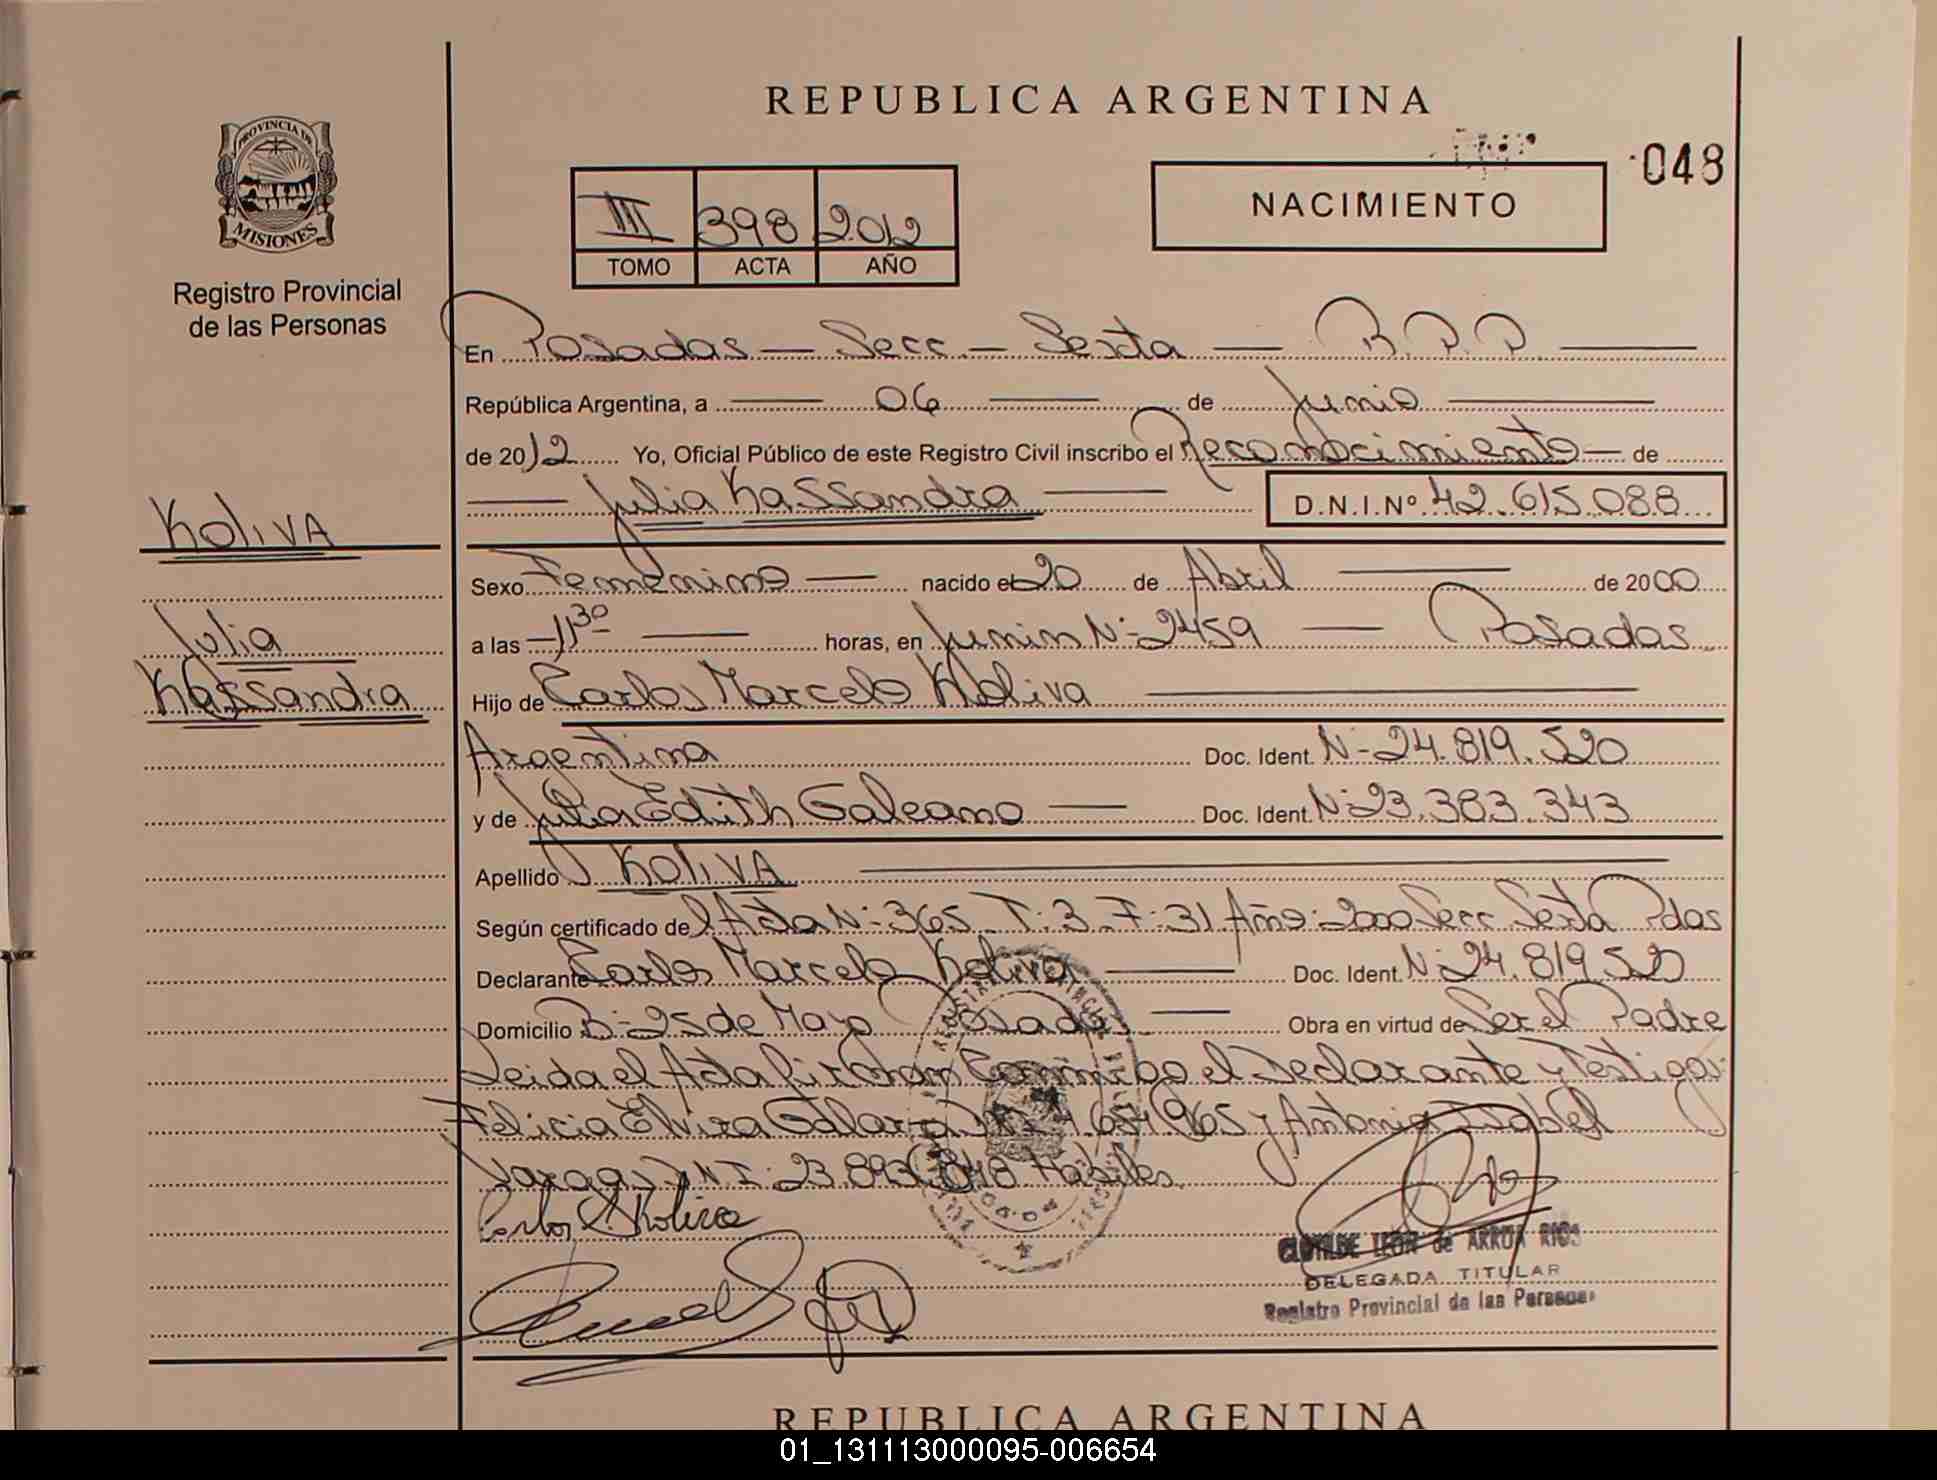 REPUBLICA ARGENTINA
048
PROVINCIA DE
MISIONES
Registro Provincial
de las Personas
III 398 2012
TOMO ACTA AÑO
NACIMIENTO
En Posadas — Secc. — Sexta — R.P.P. —
República Argentina, a — 06 — de Junio —
de 2012 Yo, Oficial Público de este Registro Civil inscribo el Reconocimiento — de
— Julia Kassandra — D.N.I.Nº 42.615.088
KOLIVA
Julia
Kassandra
Sexo Femenino — nacido el 20 de Abril — de 2000
a las — 11 30 — horas, en Junin Nº 2459 — Posadas
Hijo de Carlos Marcelo Koliva —
Argentina Doc. Ident. Nº 24.819.520
y de Julia Edith Galeano — Doc. Ident. Nº 23.383.343
Apellido KOLIVA —
Según certificado del Acta Nº 365. T:3. F:31 Año: 2000 Secc Sexta Pdas
Declarante Carlos Marcelo Koliva — Doc. Ident. Nº 24.819.520
Domicilio B: 25 de Mayo Posadas — Obra en virtud de Ser el Padre
Leida el Acta firman Conmigo el Declarante y Testigos:
Felicia Elvira Galarza 965 y Antonia Isabel
D.N.I: 23.893.848 Habiles.
Carlos Koliva
CLOTILDE LEON de ARRUA RIOS
DELEGADA TITULAR
Registro Provincial de las Personas
REPUBLICA ARGENTINA
01_131113000095-006654